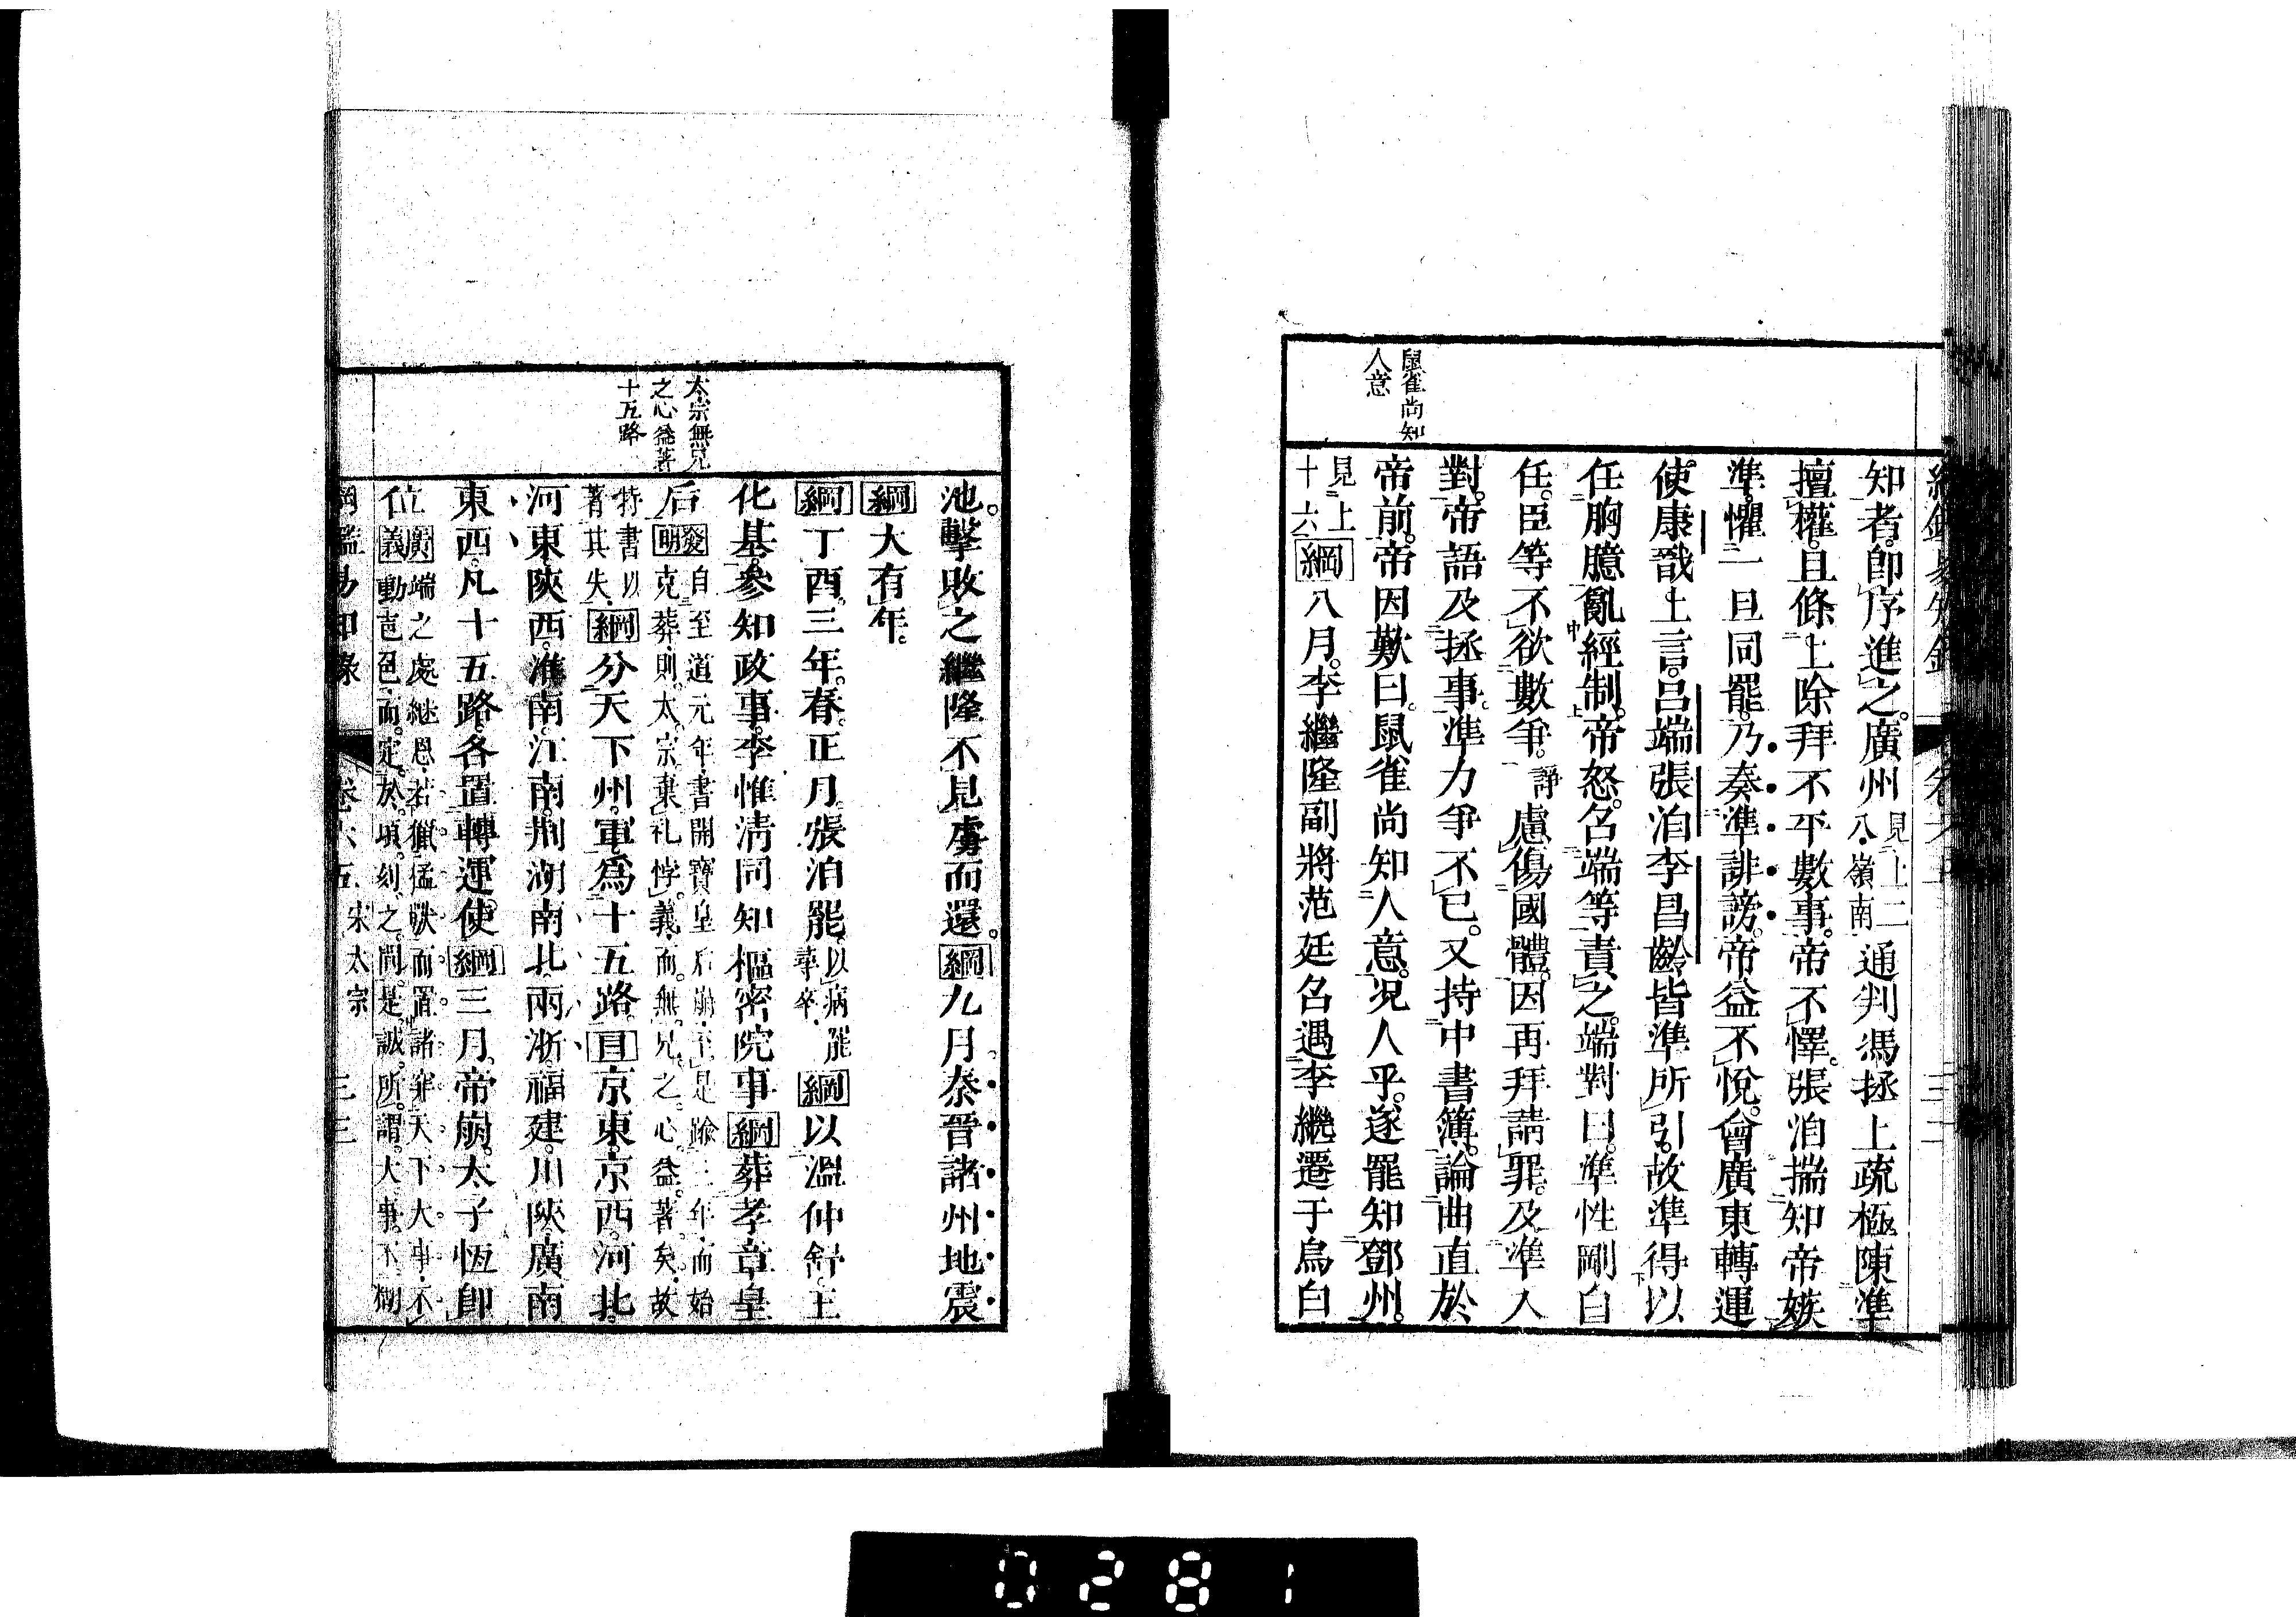 鼠雀尚知
人意
知者。即序進之。廣州見上二八嶺南通判馮拯上疏極陳準
擅權。且條上除拜不平數事。帝不懌。張洎揣知帝嫉
準。懼一旦同罷。乃奏準誹謗。帝益不悅。會廣東轉運
使康戩上言。呂端張洎李昌齡皆準所引。故準得以
任胸臆亂經制。帝怒。召端等責之。端對曰。準性剛自
任。臣等不欲數爭。諍慮傷國體。因再拜請罪。及準入
對。帝語及拯事。準力爭不已。又持中書簿。論曲直於
帝前。帝因歎曰。鼠雀尚知人意。况人乎。遂罷知鄧州。
見上十六綱八月。李繼隆副將范廷召遇李繼遷于烏白
太宗無兄
之心益著
十五路
池。擊敗之繼隆不見虜而還。綱九月秦晉諸州地震
綱大有年。
綱丁酉。三年。春。正月張洎罷。以病罷尋卒綱以溫仲舒。王
化基。參知政事。李惟清同知樞密院事綱葬孝章皇
后發明自至道元年。書開寶皇后崩。至是踰二年。而始克葬。則太宗棄礼悖義。而無兄之心益著矣。故
特書以著其失。綱分天下州軍爲十五路。目京東。京西。河北。
河東。陝西。淮南。江南。荆湖南北。兩浙。福建。川陝。廣南
東西。凡十五路。各置轉運使。綱三月。帝崩。太子恆即
位廣義端之處継恩。若獵猛獸而置諸穽。天下大事。不動声色。而定於頃刻之間。是誠所謂大事。不糊
綱鑑易知錄 卷六五 宋太宗 三三